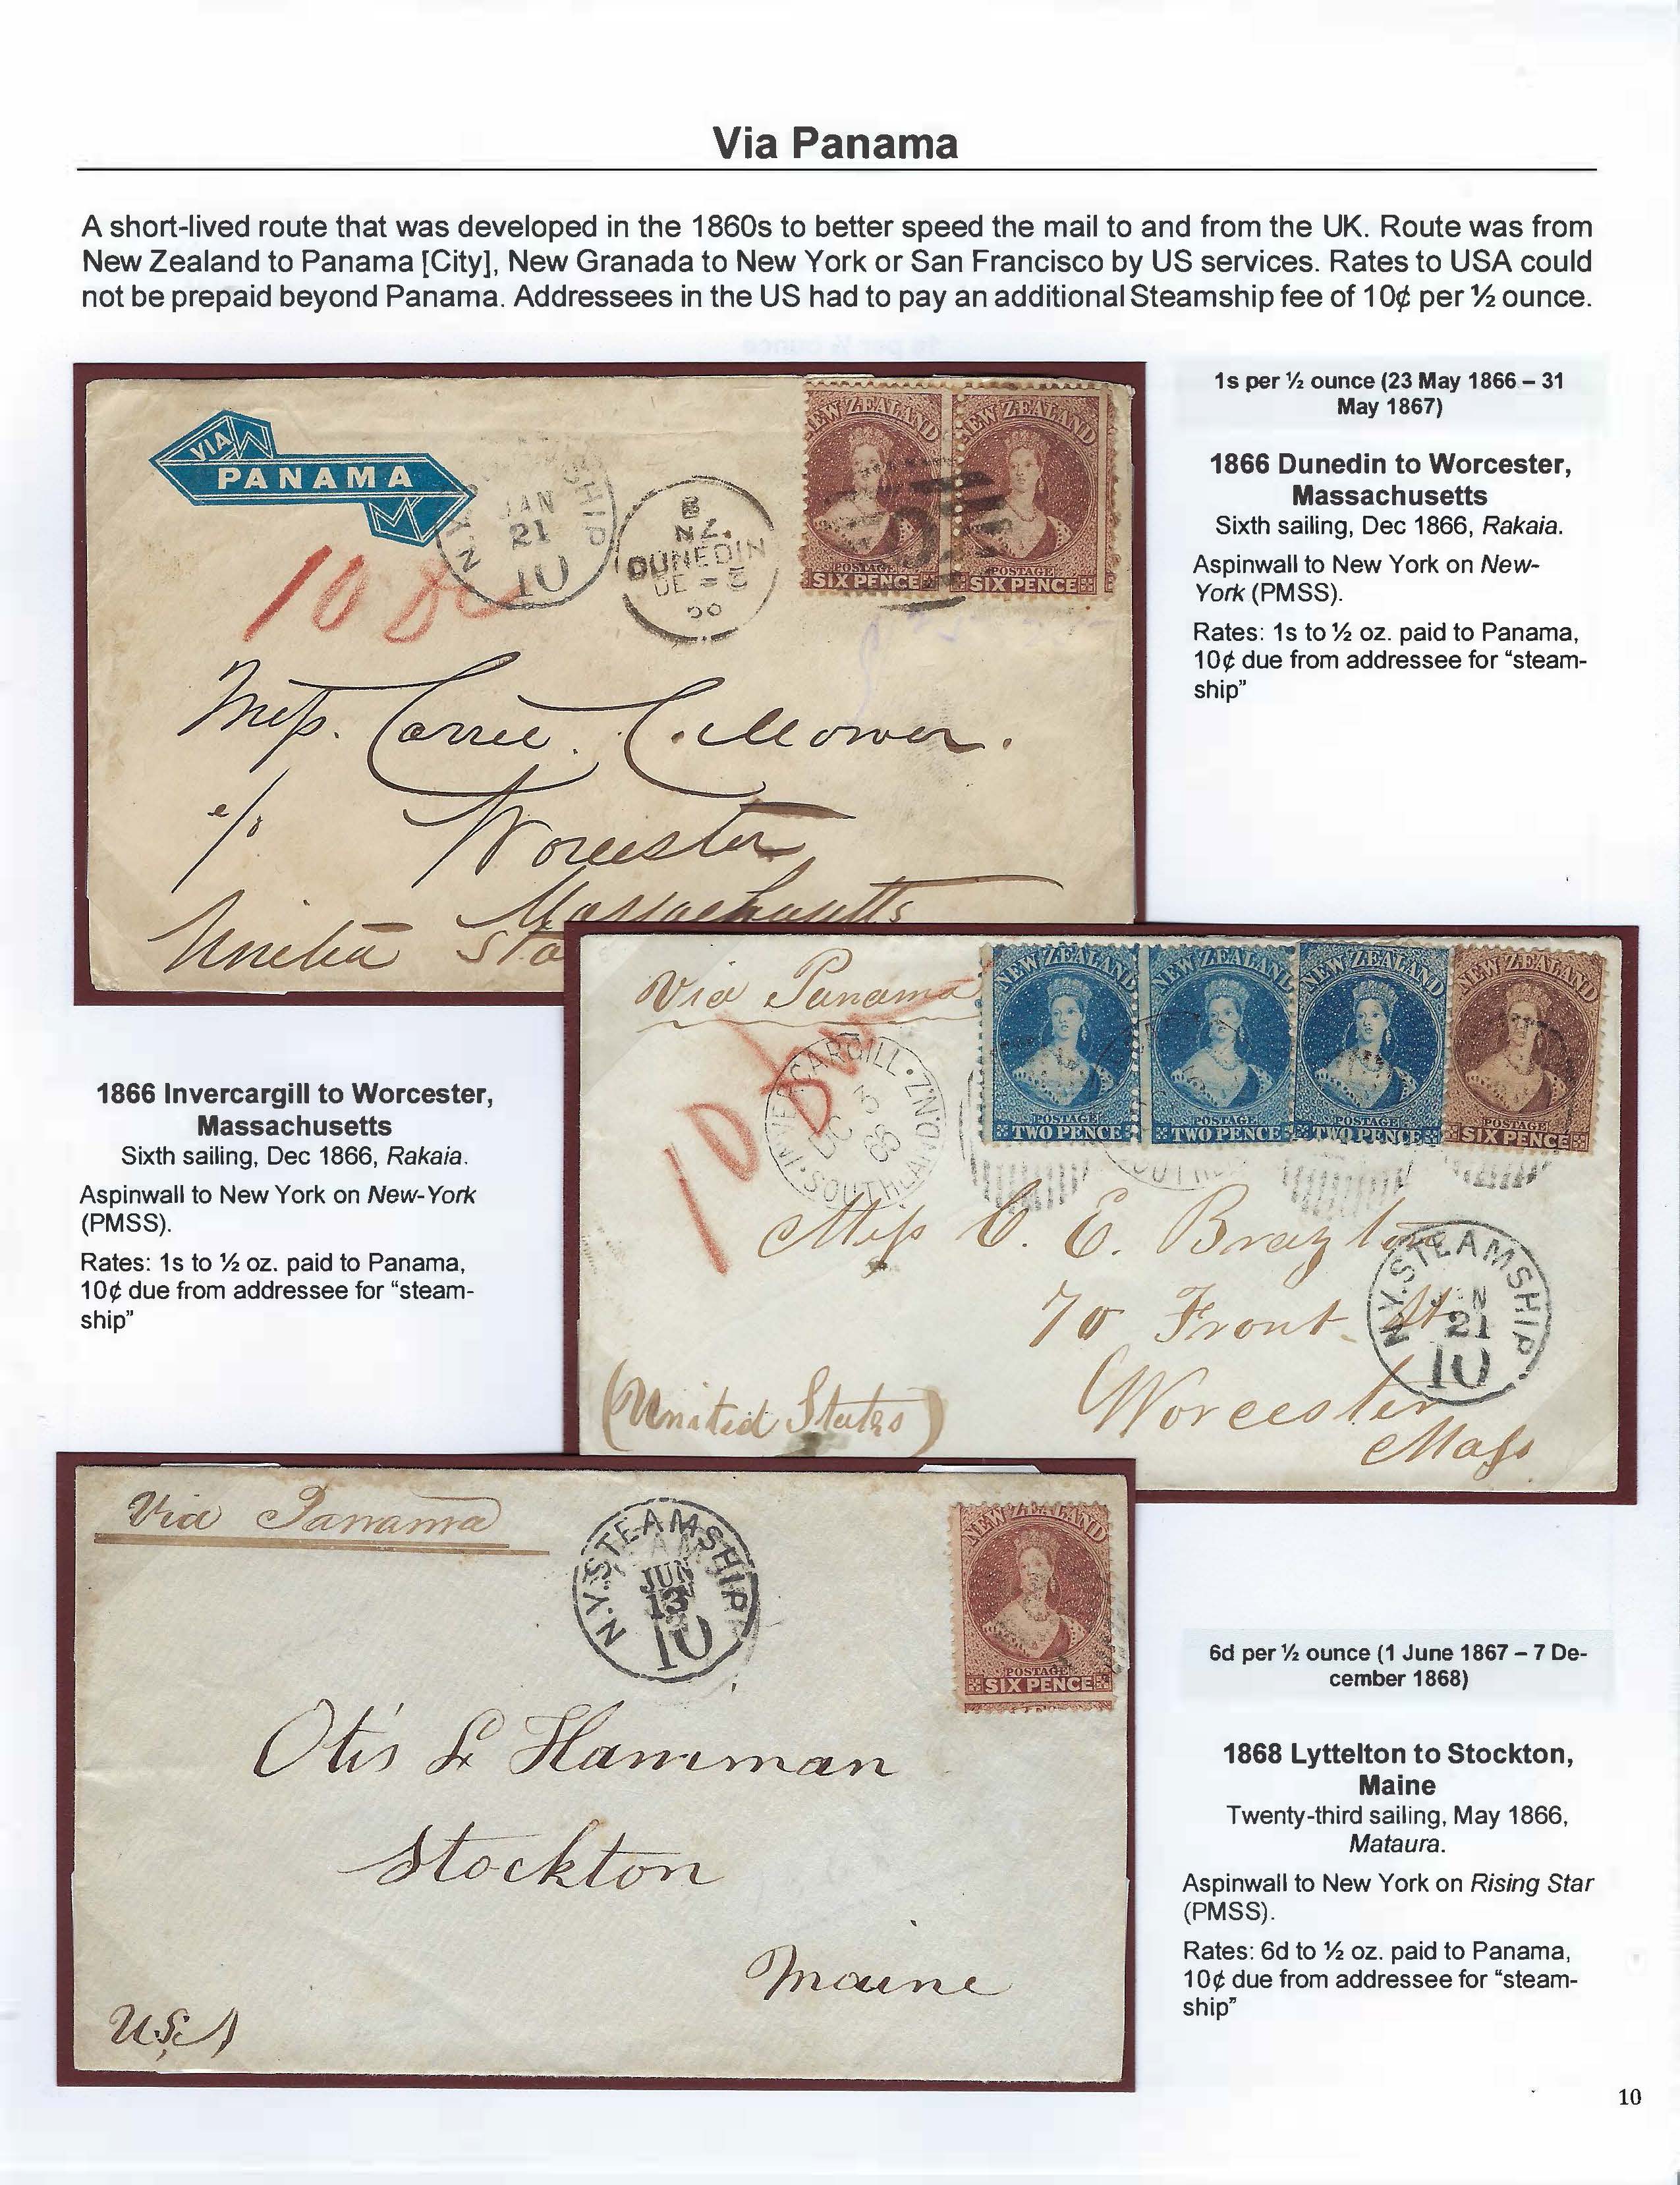 Via Panama
A short-lived route that was developed in the 1860s to better speed the mail to and from the UK. Route was from
New Zealand to Panama [City], New Granada to New York or San Francisco by US services. Rates to USA could
not be prepaid beyond Panama. Addressees in the US had to pay an additional Steamship fee of 10¢ per ½ ounce.
1s per ½ ounce (23 May 1866 – 31
May 1867)
1866 Dunedin to Worcester,
Massachusetts
Sixth sailing, Dec 1866, Rakaia.
Aspinwall to New York on New-
York (PMSS).
Rates: 1s to ½ oz. paid to Panama,
10¢ due from addressee for “steam-
ship”
VIA
PANAMA
N.Y. STEAMSHIP
JAN
21
10
NZ.
DUNEDIN
DE
NEW ZEALAND
POSTAGE
SIX PENCE
NEW ZEALAND
POSTAGE
SIX PENCE
10
Miss. Carrie. C. Mower.
Worcester
Massachusetts
United Sta
1866 Invercargill to Worcester,
Massachusetts
Sixth sailing, Dec 1866, Rakaia.
Aspinwall to New York on New-York
(PMSS).
Rates: 1s to ½ oz. paid to Panama,
10¢ due from addressee for “steam-
ship”
Via Panama
10
INVERCARGILL · N.Z.
DC 3
66
SOUTHLAND
NEW ZEALAND
POSTAGE
TWO PENCE
NEW ZEALAND
POSTAGE
TWO PENCE
NEW ZEALAND
POSTAGE
TWO PENCE
NEW ZEALAND
POSTAGE
SIX PENCE
Miss C. E. Brazlton
70 Front St
Worcester
Mass
(United States)
N.Y. STEAMSHIP
21
10
Via Panama
N.Y. STEAMSHIP
JUN
13
10
NEW ZEALAND
POSTAGE
SIX PENCE
Otis L Hamman
Stockton
Maine
U.S.A
6d per ½ ounce (1 June 1867 – 7 De-
cember 1868)
1868 Lyttelton to Stockton,
Maine
Twenty-third sailing, May 1866,
Mataura.
Aspinwall to New York on Rising Star
(PMSS).
Rates: 6d to ½ oz. paid to Panama,
10¢ due from addressee for “steam-
ship”
10